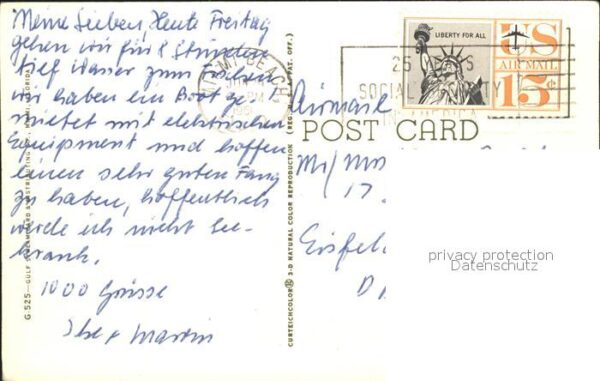 Meine Lieben, Heute Freitag
gehen wir für 8 Stunden
tief Wasser zum Fischen
wir haben ein Boot ge-
mietet mit elektrischen
Equipment und hoffen
einen sehr guten Fang
zu haben, hoffentlich
werde ich nicht See-
krank.
1000 Grüsse
Martin
G-525—GULF
CURTEICHCOLOR® 3-D NATURAL COLOR REPRODUCTION (REG. U.S. PAT. OFF.)
MIAMI BEACH
PM
LIBERTY FOR ALL
US
AIR MAIL
15¢
25 YEARS
SOCIAL SECURITY
IN AMERICA
Airmail
POST CARD
Mr/Mrs
17.
Eisfel
D
privacy protection
Datenschutz